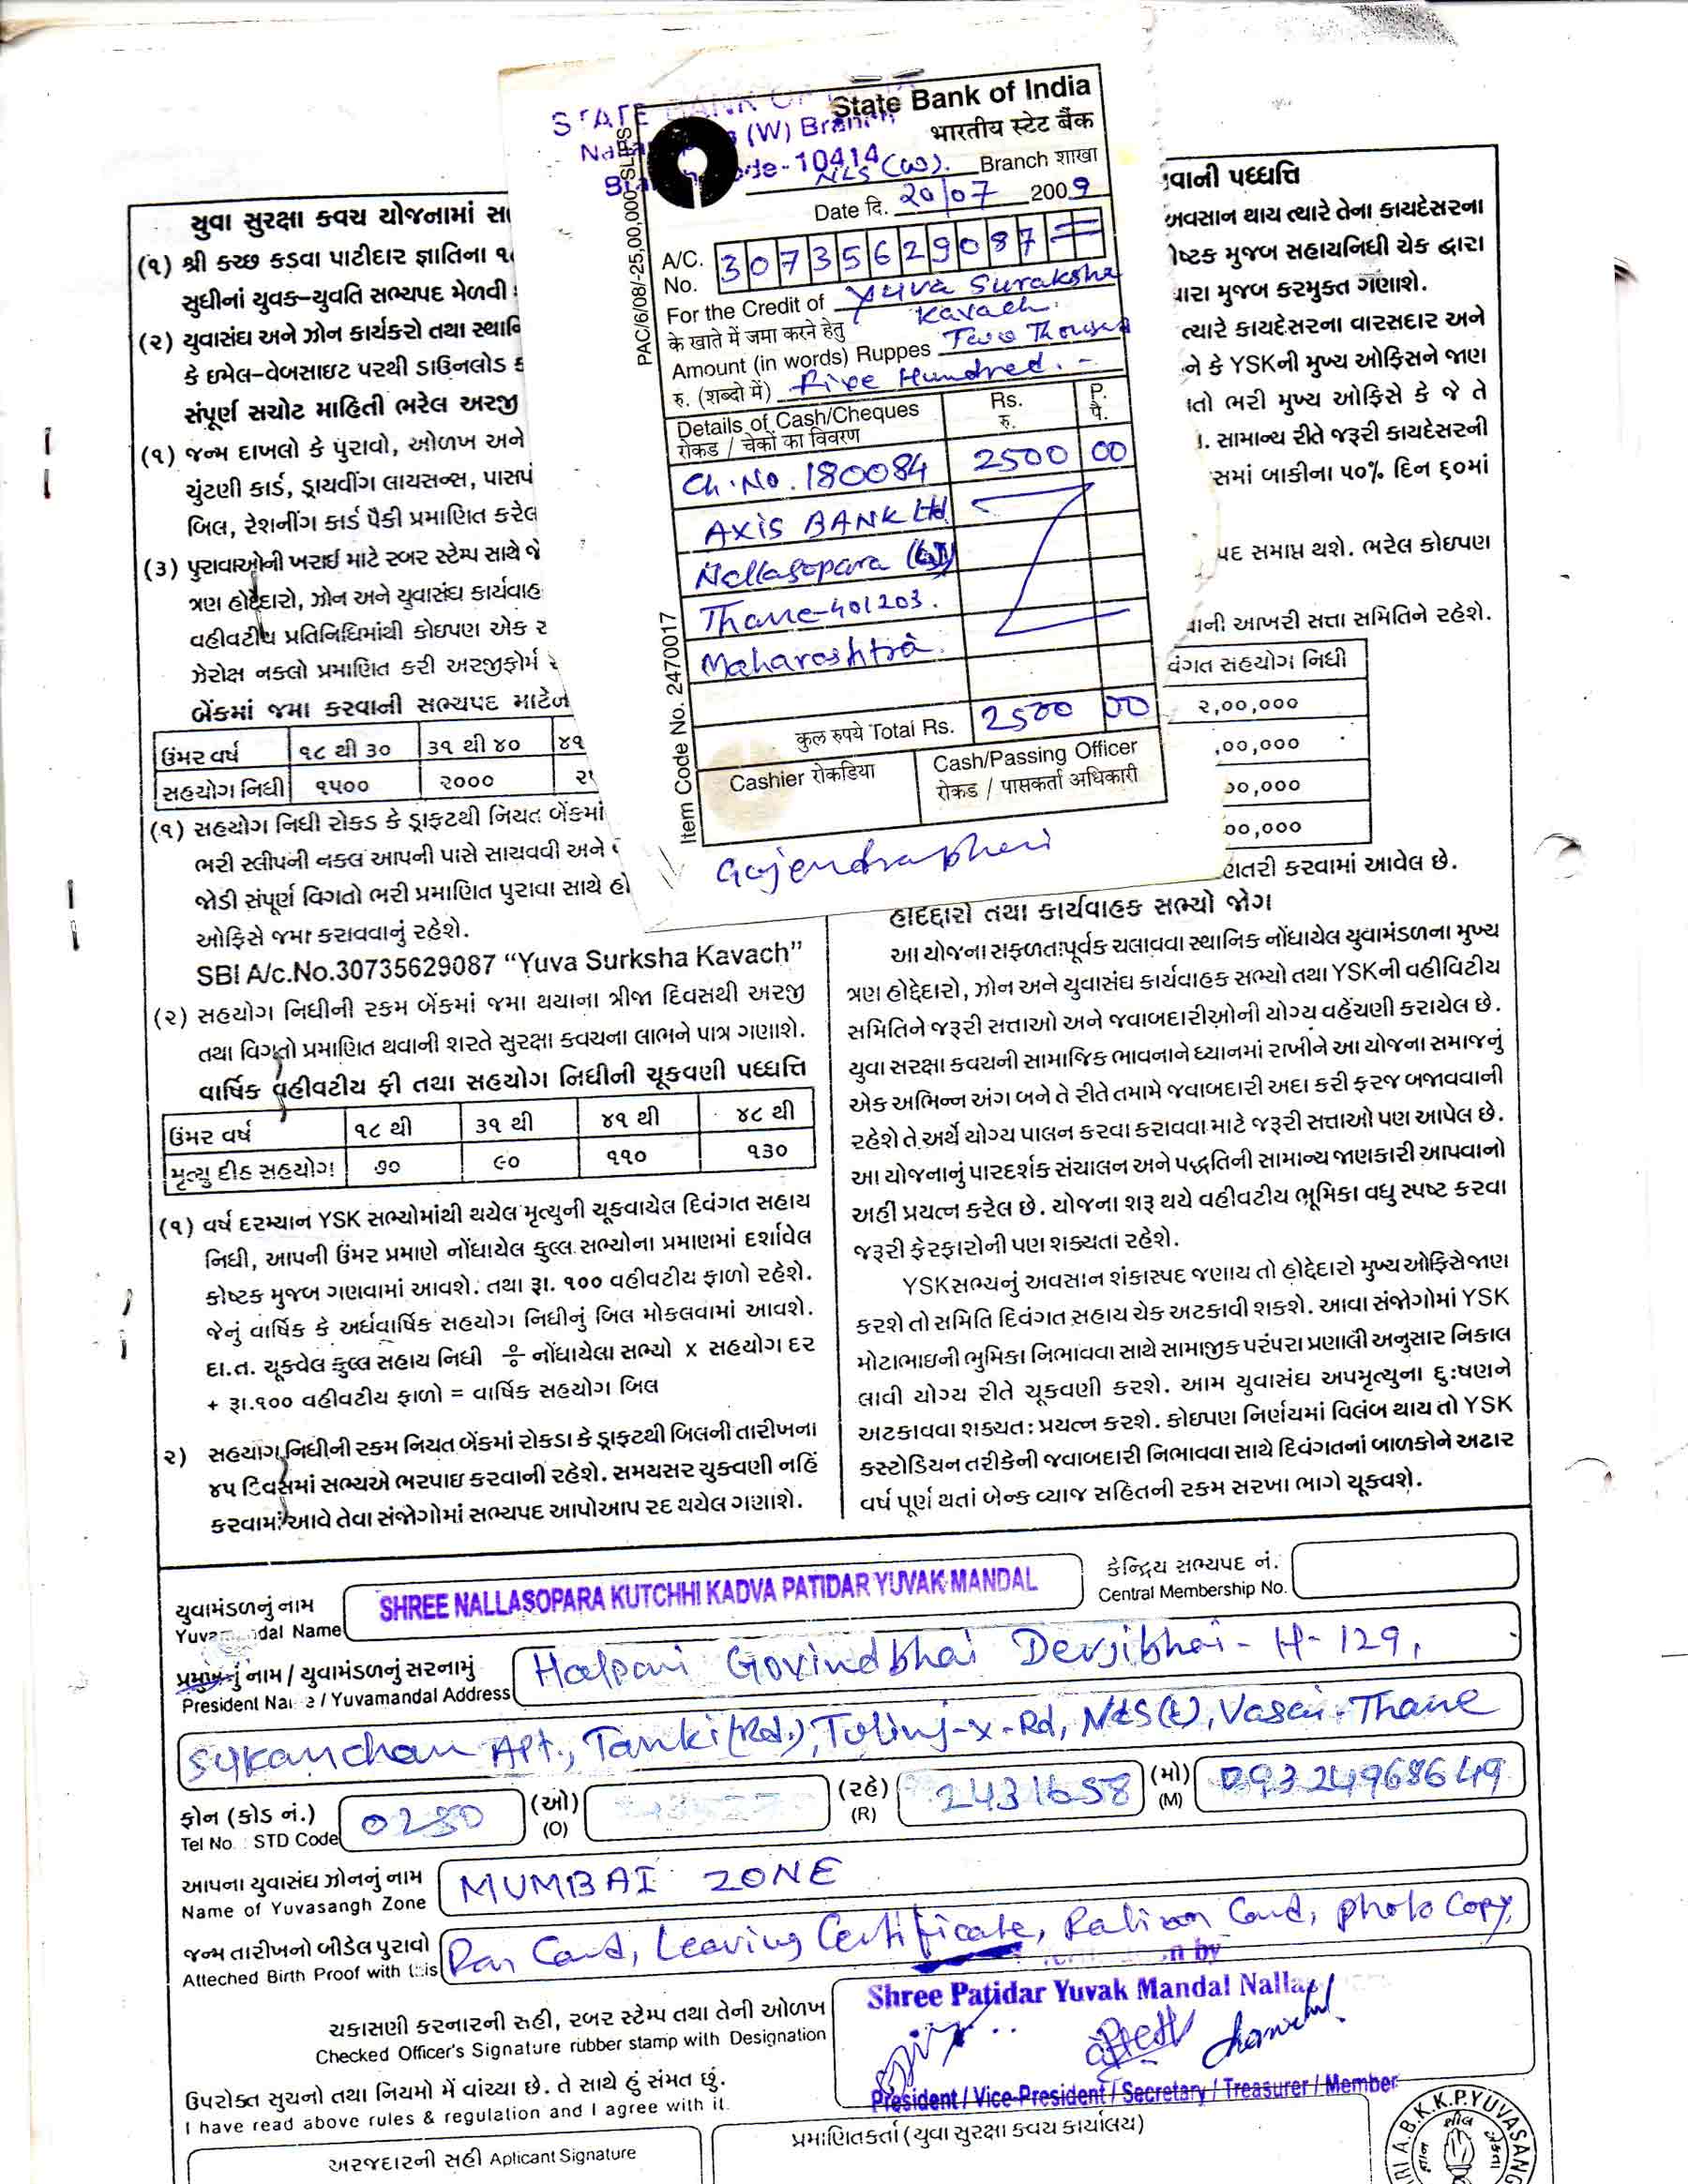 State Bank of India
भारतीय स्टेट बैंक
STATE BANK OF
(W) Branch
10414
NLS (W). Branch शाखा
Date दि. 20/07 2009
A/C. No. 30735629087
For the Credit of Yuva Suraksha
के खाते में जमा करने हेतु Kavach.
Amount (in words) Ruppes Two Thousand
रु. (शब्दो में) Five Hundred. -
Details of Cash/Cheques Rs. P.
रोकड / चेकों का विवरण रु. पै.
Ch. No. 180084 2500 00
AXIS BANK Ltd
Nallasopara (W)
Thane-401203.
Maharashtra.
कुल रुपये Total Rs. 2500 00
Cashier रोकडिया Cash/Passing Officer
रोकड / पासकर्ता अधिकारी
PAC/6/08/-25,00,000 SLIPS
Item Code No. 2470017
યુવા સુરક્ષા કવચ યોજનામાં
(૧) શ્રી કચ્છ કડવા પાટીદાર જ્ઞાતિના
સુધીનાં યુવક-યુવતિ સભ્યપદ મેળવી
(૨) યુવાસંઘ અને ઝોન કાર્યકરો તથા
કે ઇમેલ-વેબસાઇટ પરથી ડાઉનલોડ
સંપૂર્ણ સચોટ માહિતી ભરેલ અરજી
(૧) જન્મ દાખલો કે પુરાવો, ઓળખ અને
ચુંટણી કાર્ડ, ડ્રાયવીંગ લાયસન્સ,
બિલ, રેશનીંગ કાર્ડ પૈકી પ્રમાણિત કરેલ
(૩) પુરાવાઓની ખરાઈ માટે રબર સ્ટેમ્પ સાથે જે
ત્રણ હોદ્દેદારો, ઝોન અને યુવાસંઘ કાર્યવાહ
વહીવટીય પ્રતિનિધિમાંથી કોઇપણ એક
ઝેરોક્ષ નકલો પ્રમાણિત કરી અરજીફોર્મ
બેંકમાં જમા કરવાની સભ્યપદ માટેન
ઉંમર વર્ષ ૧૮ થી ૩૦ ૩૧ થી ૪૦ ૪૧
સહયોગ નિધી ૧૫૦૦ ૨૦૦૦
(૧) સહયોગ નિધી રોકડ કે ડ્રાફટથી નિયત બેંકમાં
ભરી સ્લીપની નકલ આપની પાસે સાચવવી અને
જોડી સંપૂર્ણ વિગતો ભરી પ્રમાણિત પુરાવા સાથે હો
ઓફિસે જમા કરાવવાનું રહેશે.
SBI A/c.No.30735629087 “Yuva Surksha Kavach”
(૨) સહયોગ નિધીની રકમ બેંકમાં જમા થયાના ત્રીજા દિવસથી અરજી
તથા વિગતો પ્રમાણિત થવાની શરતે સુરક્ષા કવચના લાભને પાત્ર ગણાશે.
વાર્ષિક વહીવટીય ફી તથા સહયોગ નિધીની ચૂકવણી પધ્ધત્તિ
ઉંમર વર્ષ ૧૮ થી ૩૧ થી ૪૧ થી ૪૮ થી
મૃત્યુ દીઠ સહયોગ ૭૦ ૯૦ ૧૧૦ ૧૩૦
(૧) વર્ષ દરમ્યાન YSK સભ્યોમાંથી થયેલ મૃત્યુની ચૂકવાયેલ દિવંગત સહાય
નિધી, આપની ઉંમર પ્રમાણે નોંધાયેલ કુલ્લ સભ્યોના પ્રમાણમાં દર્શાવેલ
કોષ્ટક મુજબ ગણવામાં આવશે. તથા રૂા. ૧૦૦ વહીવટીય ફાળો રહેશે.
જેનું વાર્ષિક કે અર્ધવાર્ષિક સહયોગ નિધીનું બિલ મોકલવામાં આવશે.
દા.ત. ચૂકવેલ કુલ્લ સહાય નિધી ÷ નોંધાયેલા સભ્યો x સહયોગ દર
+ રૂા.૧૦૦ વહીવટીય ફાળો = વાર્ષિક સહયોગ બિલ
૨) સહયોગ નિધીની રકમ નિયત બેંકમાં રોકડા કે ડ્રાફટથી બિલની તારીખના
૪૫ દિવસમાં સભ્યએ ભરપાઇ કરવાની રહેશે. સમયસર ચુકવણી નહિં
કરવામાં આવે તેવા સંજોગોમાં સભ્યપદ આપોઆપ રદ થયેલ ગણાશે.
વાની પધ્ધત્તિ
અવસાન થાય ત્યારે તેના કાયદેસરના
ષ્ટક મુજબ સહાયનિધી ચેક દ્વારા
મુજબ કરમુક્ત ગણાશે.
ત્યારે કાયદેસરના વારસદાર અને
ને કે YSKની મુખ્ય ઓફિસને જાણ
તો ભરી મુખ્ય ઓફિસે કે જે તે
સામાન્ય રીતે જરૂરી કાયદેસરની
સમાં બાકીના ૫૦% દિન ૬૦માં
પદ સમાપ્ત થશે. ભરેલ કોઇપણ
વાની આખરી સત્તા સમિતિને રહેશે.
વંગત સહયોગ નિધી
૨,૦૦,૦૦૦
,૦૦,૦૦૦
૦૦,૦૦૦
૦૦,૦૦૦
ણતરી કરવામાં આવેલ છે.
હોદેદ્દારો તથા કાર્યવાહક સભ્યો જોગ
આ યોજના સફળતાપૂર્વક ચલાવવા સ્થાનિક નોંધાયેલ યુવામંડળના મુખ્ય
ત્રણ હોદ્દેદારો, ઝોન અને યુવાસંઘ કાર્યવાહક સભ્યો તથા YSKની વહીવિટીય
સમિતિને જરૂરી સત્તાઓ અને જવાબદારીઓની યોગ્ય વહેંચણી કરાયેલ છે.
યુવા સરક્ષા કવચની સામાજિક ભાવનાને ધ્યાનમાં રાખીને આ યોજના સમાજનું
એક અભિન્ન અંગ બને તે રીતે તમામે જવાબદારી અદા કરી ફરજ બજાવવાની
રહેશે તે અર્થે યોગ્ય પાલન કરવા કરાવવા માટે જરૂરી સત્તાઓ પણ આપેલ છે.
આ યોજનાનું પારદર્શક સંચાલન અને પદ્ધતિની સામાન્ય જાણકારી આપવાનો
અહીં પ્રયત્ન કરેલ છે. યોજના શરૂ થયે વહીવટીય ભૂમિકા વધુ સ્પષ્ટ કરવા
જરૂરી ફેરફારોની પણ શક્યતા રહેશે.
YSK સભ્યનું અવસાન શંકાસ્પદ જણાય તો હોદ્દેદારો મુખ્ય ઓફિસે જાણ
કરશે તો સમિતિ દિવંગત સહાય ચેક અટકાવી શકશે. આવા સંજોગોમાં YSK
મોટાભાઇની ભુમિકા નિભાવવા સાથે સામાજીક પરંપરા પ્રણાલી અનુસાર નિકાલ
લાવી યોગ્ય રીતે ચૂકવણી કરશે. આમ યુવાસંઘ અપમૃત્યુના દુઃષણને
અટકાવવા શક્યતઃ પ્રયત્ન કરશે. કોઇપણ નિર્ણયમાં વિલંબ થાય તો YSK
કસ્ટોડિયન તરીકેની જવાબદારી નિભાવવા સાથે દિવંગતનાં બાળકોને અઢાર
વર્ષ પૂર્ણ થતાં બેન્ક વ્યાજ સહિતની રકમ સરખા ભાગે ચૂકવશે.
યુવામંડળનું નામ SHREE NALLASOPARA KUTCHHI KADVA PATIDAR YUVAK MANDAL કેન્દ્રિય સભ્યપદ નં.
Name Central Membership No.
પ્રમુખનું નામ / યુવામંડળનું સરનામું Halpani Govindbhai Devjibhai - H-129,
President Name / Yuvamandal Address
Sukanchan Apt., Tanki (Rd.), Tulinj-x-Rd, NLS(E), Vasai. Thane
ફોન (કોડ નં.) 0250 (ઓ) (રહે) 2431658 (મો) 09324968649
Tel No. : STD Code (O) (R) (M)
આપના યુવાસંઘ ઝોનનું નામ MUMBAI ZONE
Name of Yuvasangh Zone
જન્મ તારીખનો બીડેલ પુરાવો Pan Card, Leaving Certificate, Ration Card, photo Copy,
Atteched Birth Proof with this
Shree Patidar Yuvak Mandal
ચકાસણી કરનારની સહી, રબર સ્ટેમ્પ તથા તેની ઓળખ
Checked Officer's Signature rubber stamp with Designation
President / Vice-President / Secretary / Treasurer / Member
ઉપરોક્ત સુચનો તથા નિયમો મેં વાંચ્યા છે. તે સાથે હું સંમત છું.
I have read above rules & regulation and I agree with it.
પ્રમાણિતકર્તા (યુવા સુરક્ષા કવચ કાર્યાલય)
અરજદારની સહી Aplicant Signature
A.B.K.K.P. YUVASANG